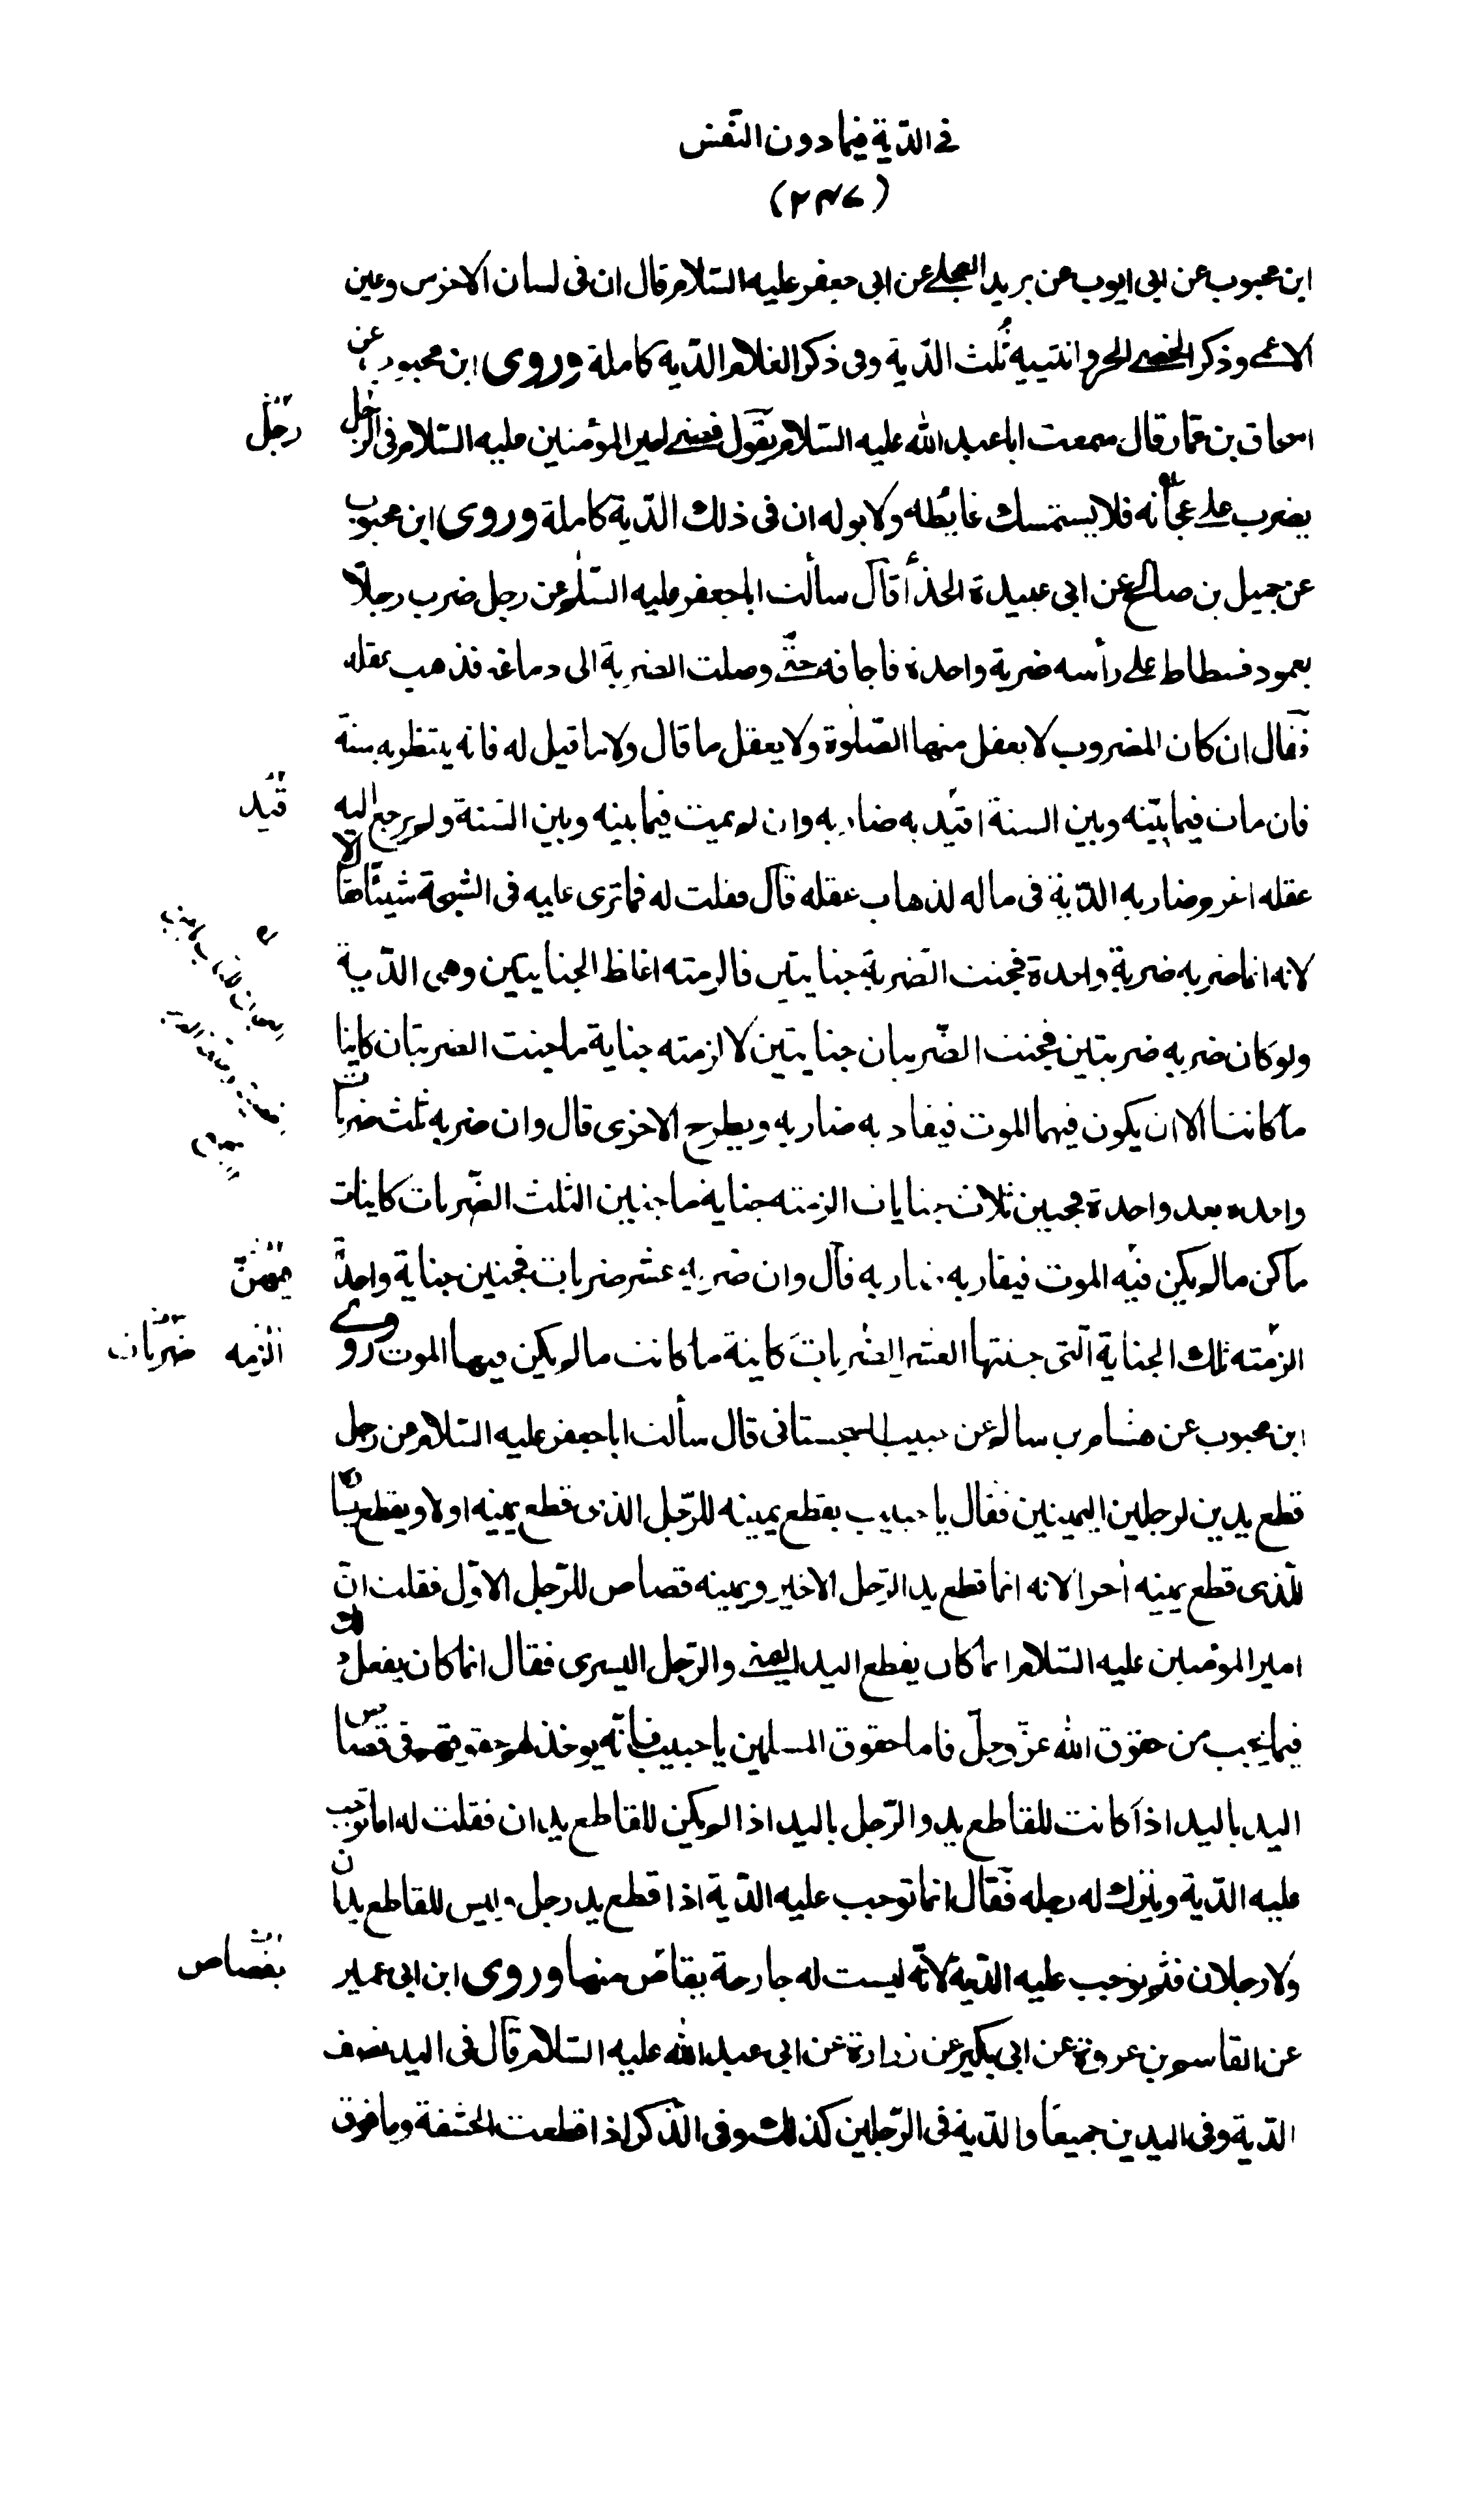 في الدّية فيما دون النّفس
(٢٤٧)
ابن محبوب عن ابى ايوب عن بريد العجلي عن ابى جعفر عليه السّلام قال ان فى لسان الاخرس وعين
الاعمى وذكر الخصي الحر وانثييه ثُلث الدّية وفى ذكر الغلام الدّية كاملة وروى ابن محبوب عن
اسحاق بن عمار قال سمعت ابا عبد الله عليه السّلام يقول قضى امير المؤمنين عليه السّلام فى الرجل
رجل
يضرب على عجانه فلا يستمسك غايطه ولا بوله ان فى ذلك الدّية كاملة وروى ابن محبوب
عن جميل بن صالح عن ابى عبيدة الحذأ قال سألت ابا جعفر عليه السّلم عن رجل ضرب رجلًا
بعمود فسطاط على رأسه ضربة واحدة فاجافه حتّى وصلت الضربة الى دماغه فذهب عقله
فقال ان كان المضروب لا يعقل منها الصّلوة ولا يعقل ما قال ولا ما قيل له فانه ينتظر به سنة
فان مات فيما بينه وبين السنة اقيد به ضاربه وان لم يمت فيما بينه وبين السّنة ولم يرجع اليه
قيد
عقله اغرم ضاربه الدّية فى ماله لذهاب عقله قال فقلت له فما ترى عليه فى الشجة شيئًا قال لا
لانه انما ضربه ضربة واحدة فجنت الضّربة جنايتين فالزمته اغلظ الجنايتين وهى الدّية
ولو كان ضربه ضربتين فجنت الضّربتان جنايتين لالزمته جناية ما جنت الضربتان كاينا
ما كانتا الا ان يكون فيهما الموت فيقاد به ضاربه ويطرح الاخرى قال وان ضربه ثلث ضربات
واحدة بعد واحدة فجنين ثلاث جنايات الزمته جناية ما جنين الثلث الضّربات كاينات
ما كن ما لم يكن فيه الموت فيقاد به ضاربه قال وان ضربه عشر ضربات فجنين جناية واحدة
فيهن
الزمته تلك الجناية الّتى جنتها العشر الضربات كاينة ما كانت ما لم يكن فيها الموت روى
الزمه
ضربات
ابن محبوب عن هشام بن سالم عن حبيب السجستانى قال سألت ابا جعفر عليه السّلام عن رجل
قطع يدين لرجلين اليمينين فقال يا حبيب يقطع يمينه للرّجل الذى قطع يمينه اولا ويقطع يساره
للّذى قطع يمينه اخرا لانه انما قطع يد الرّجل الاخير ويمينه قصاص للرّجل الاوّل فقلت انّ
امير المؤمنين عليه السّلام انما كان يقطع اليد اليمنى والرّجل اليسرى فقال انما كان يفعل ذلك
فيما يجب من حقوق الله عزّ وجلّ فاما حقوق المسلمين يا حبيب فانّه يوخذ لهم حقوقهم فى قصاص
اليد باليد اذا كانت للقاطع يد والرّجل باليد اذا لم يكن للقاطع يدان فقلت له اما توجب
عليه الدّية ويترك له رجله فقال انما توجب عليه الدّية اذا قطع يد رجل وليس للقاطع يدان
ولا رجلان فثم يوجب عليه الدّية لانّه ليست له جارحة يقاصّ منها وروى ابن ابى عمير
بقصاص
عن القاسم بن عروة عن ابى بكير عن زرارة عن ابى عبد الله عليه السّلام قال فى اليد نصف
الدّية وفى اليدين جميعًا والدّية فى الرّجلين كذلك وفى الذّكر اذا قطعت الحشفة وما فوق